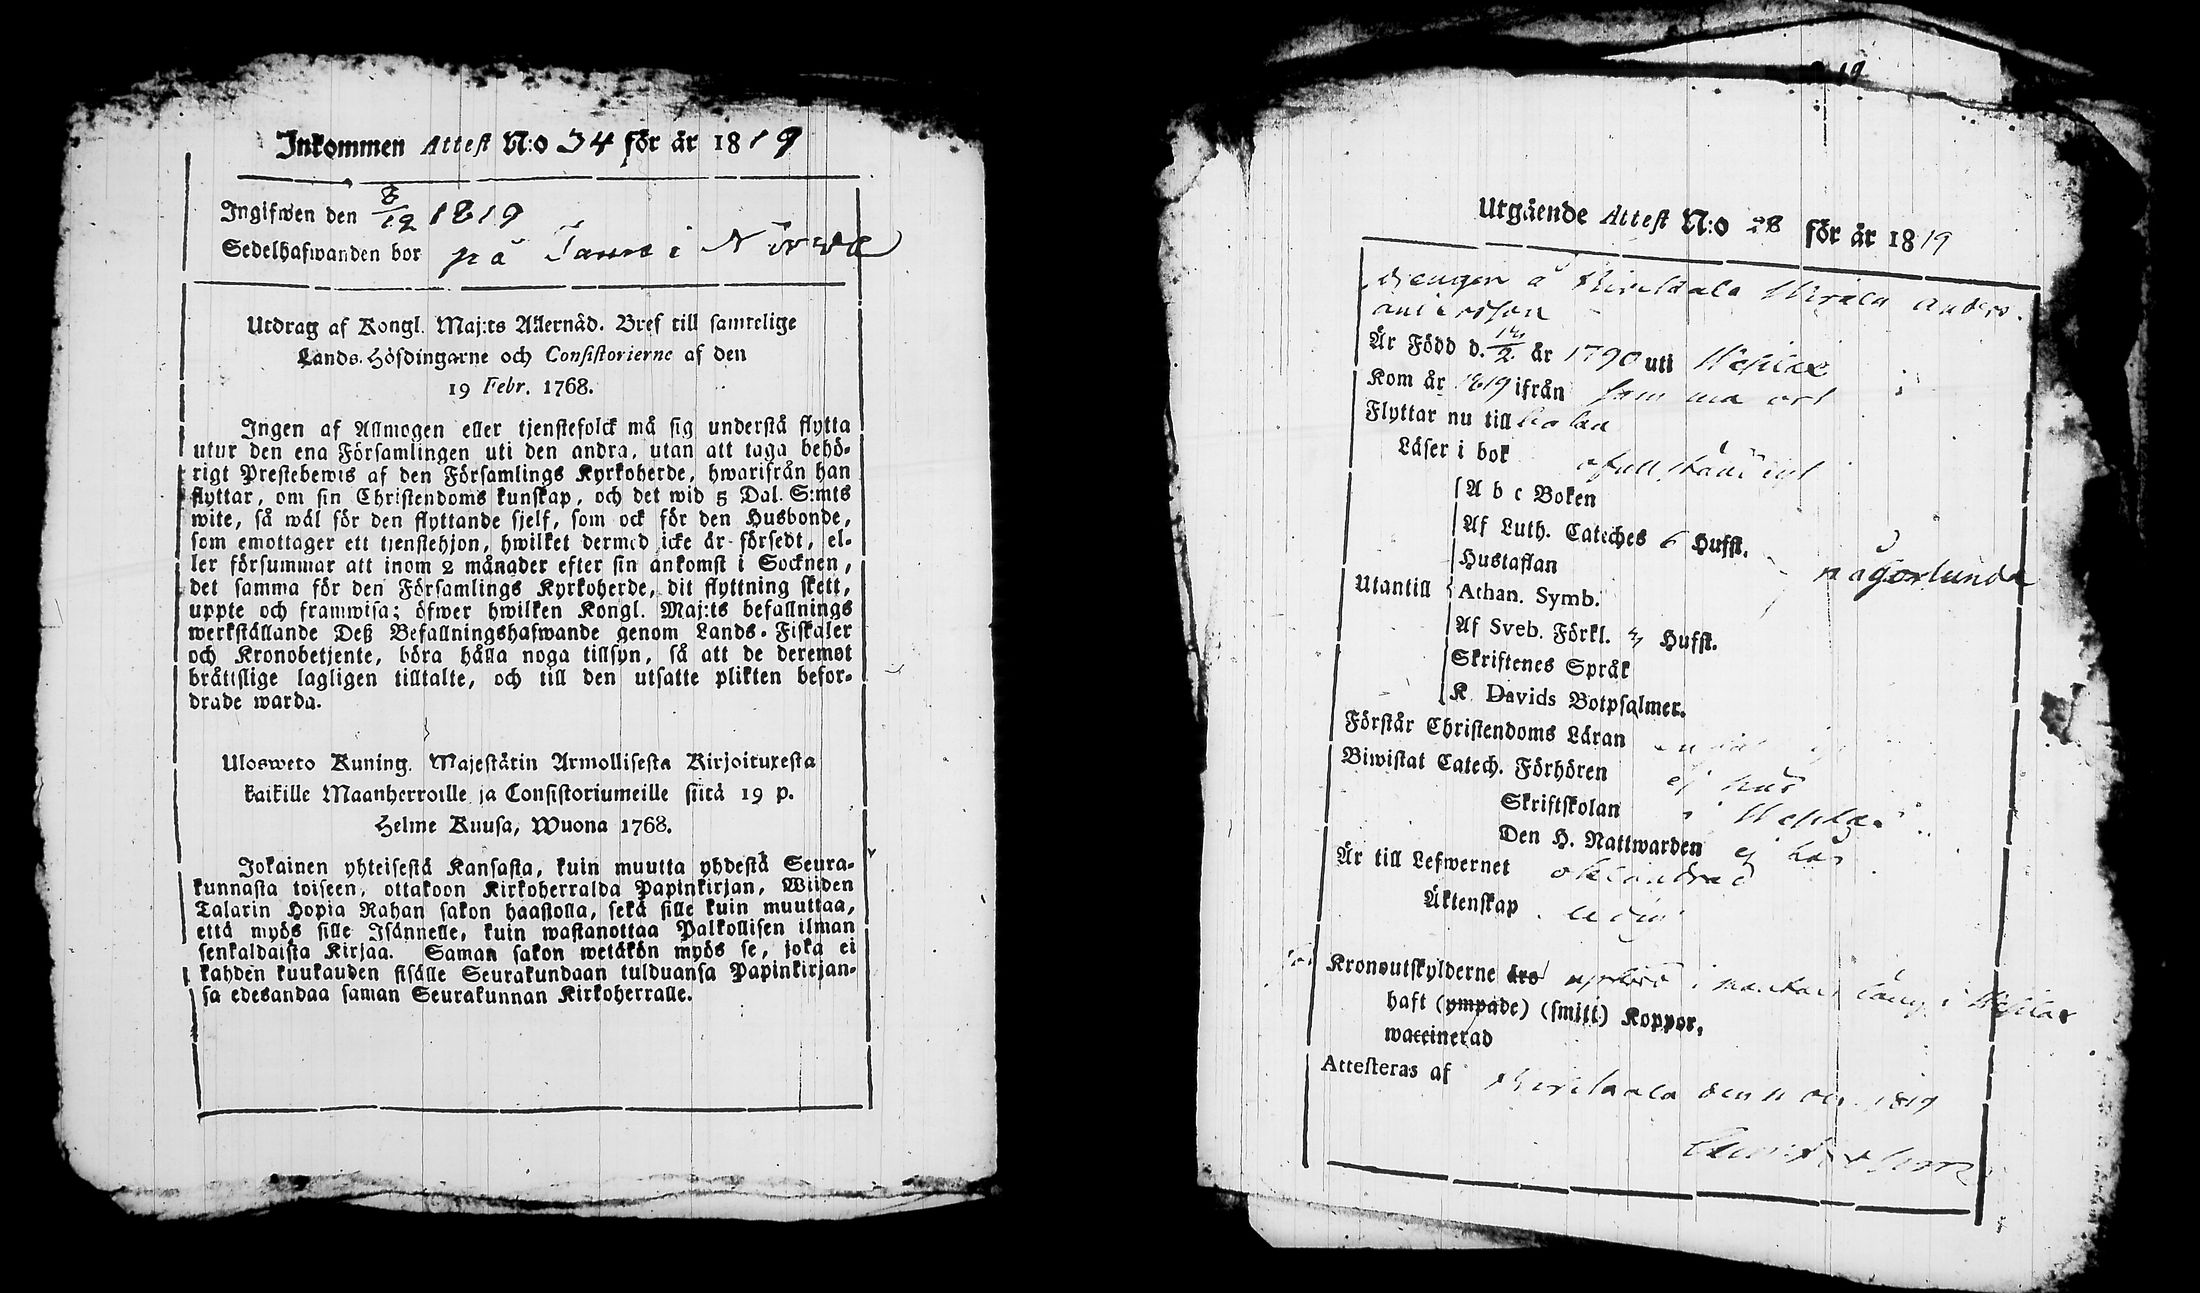 Inkommen Attest N:o 34 för år 1819
Ingifwen den 8/12 1819
Sedelhafwanden bor på i
Utdrag af Kongl. Maj:ts Allernåd. Bref till samtelige
Lands-Höfdingarne och Consistorierne af den
19 Febr. 1768.
Ingen af Allmogen eller tjenstefolck må sig understå flytta
utur den ena Församlingen uti den andra, utan att taga behö-
rigt Prestebewis af den Församlings Kyrkoherde, hwarifrån han
flyttar, om sin Christendoms kunskap, och det wid 5 Dal. S:mts
wite, så wäl för den flyttande sjelf, som ock för den Husbonde,
som emottager ett tjenstehjon, hwilket dermed icke är försedt, el-
ler försummar att inom 2 månader efter sin ankomst i Socknen,
det samma för den Församlings Kyrkoherde, dit flyttning skett,
uppte och framwisa; öfwer hwilken Kongl. Maj:ts befallnings
werkställande Deß Befallningshafwande genom Lands-Fiskaler
och Kronobetjente, böra hålla noga tillsyn, så att de deremot
bråttslige lagligen tilltalte, och till den utsatte plikten befor-
drade warda.
Ulosweto Kuning. Majestätin Armollisesta Kirjoituxesta
kaikille Maanherroille ja Consistoriumeille siitä 19 p.
Helme Kuusa, Wuona 1768.
Jokainen yhteisestä Kansasta, kuin muutta yhdestä Seura-
kunnasta toiseen, ottakoon Kirkoherralda Papinkirjan, Wiiden
Talarin Hopia Rahan sakon haastolla, sekä sille kuin muuttaa,
että myös sille Isännelle, kuin wastanottaa Palkollisen ilman
senkaldaista Kirjaa. Saman sakon wetäkön myös se, joka ei
kahden kuukauden sisälle Seurakundaan tulduansa Papinkirjan-
sa edesandaa saman Seurakunnan Kirkoherralle.
19
Utgående Attest N:o 28 för år 1819
Drengen å Anders
Andersson
Är Född d. /2 år 1790 uti
Kom år 1819 ifrån samma ort
Flyttar nu till
Läser i bok ofullständigt
A b c Boken
Af Luth. Cateches 6 Hufst.
Hustaflan någorlunda
Utantill Athan. Symb.
Af Sveb. Förkl. Hufst.
Skriftenes Språk
K. Davids Botpsalmer.
Förstår Christendoms Läran
Biwistat Catech. Förhören ej här
Skriftskolan i
Den H. Nattwarden ej här
Är till Lefwernet oklandrad
Äktenskap ledig
Kronoutskylderne äro i
haft (ympade) (smitt) Koppor,
waccinerad
Attesteras af den 11 1819